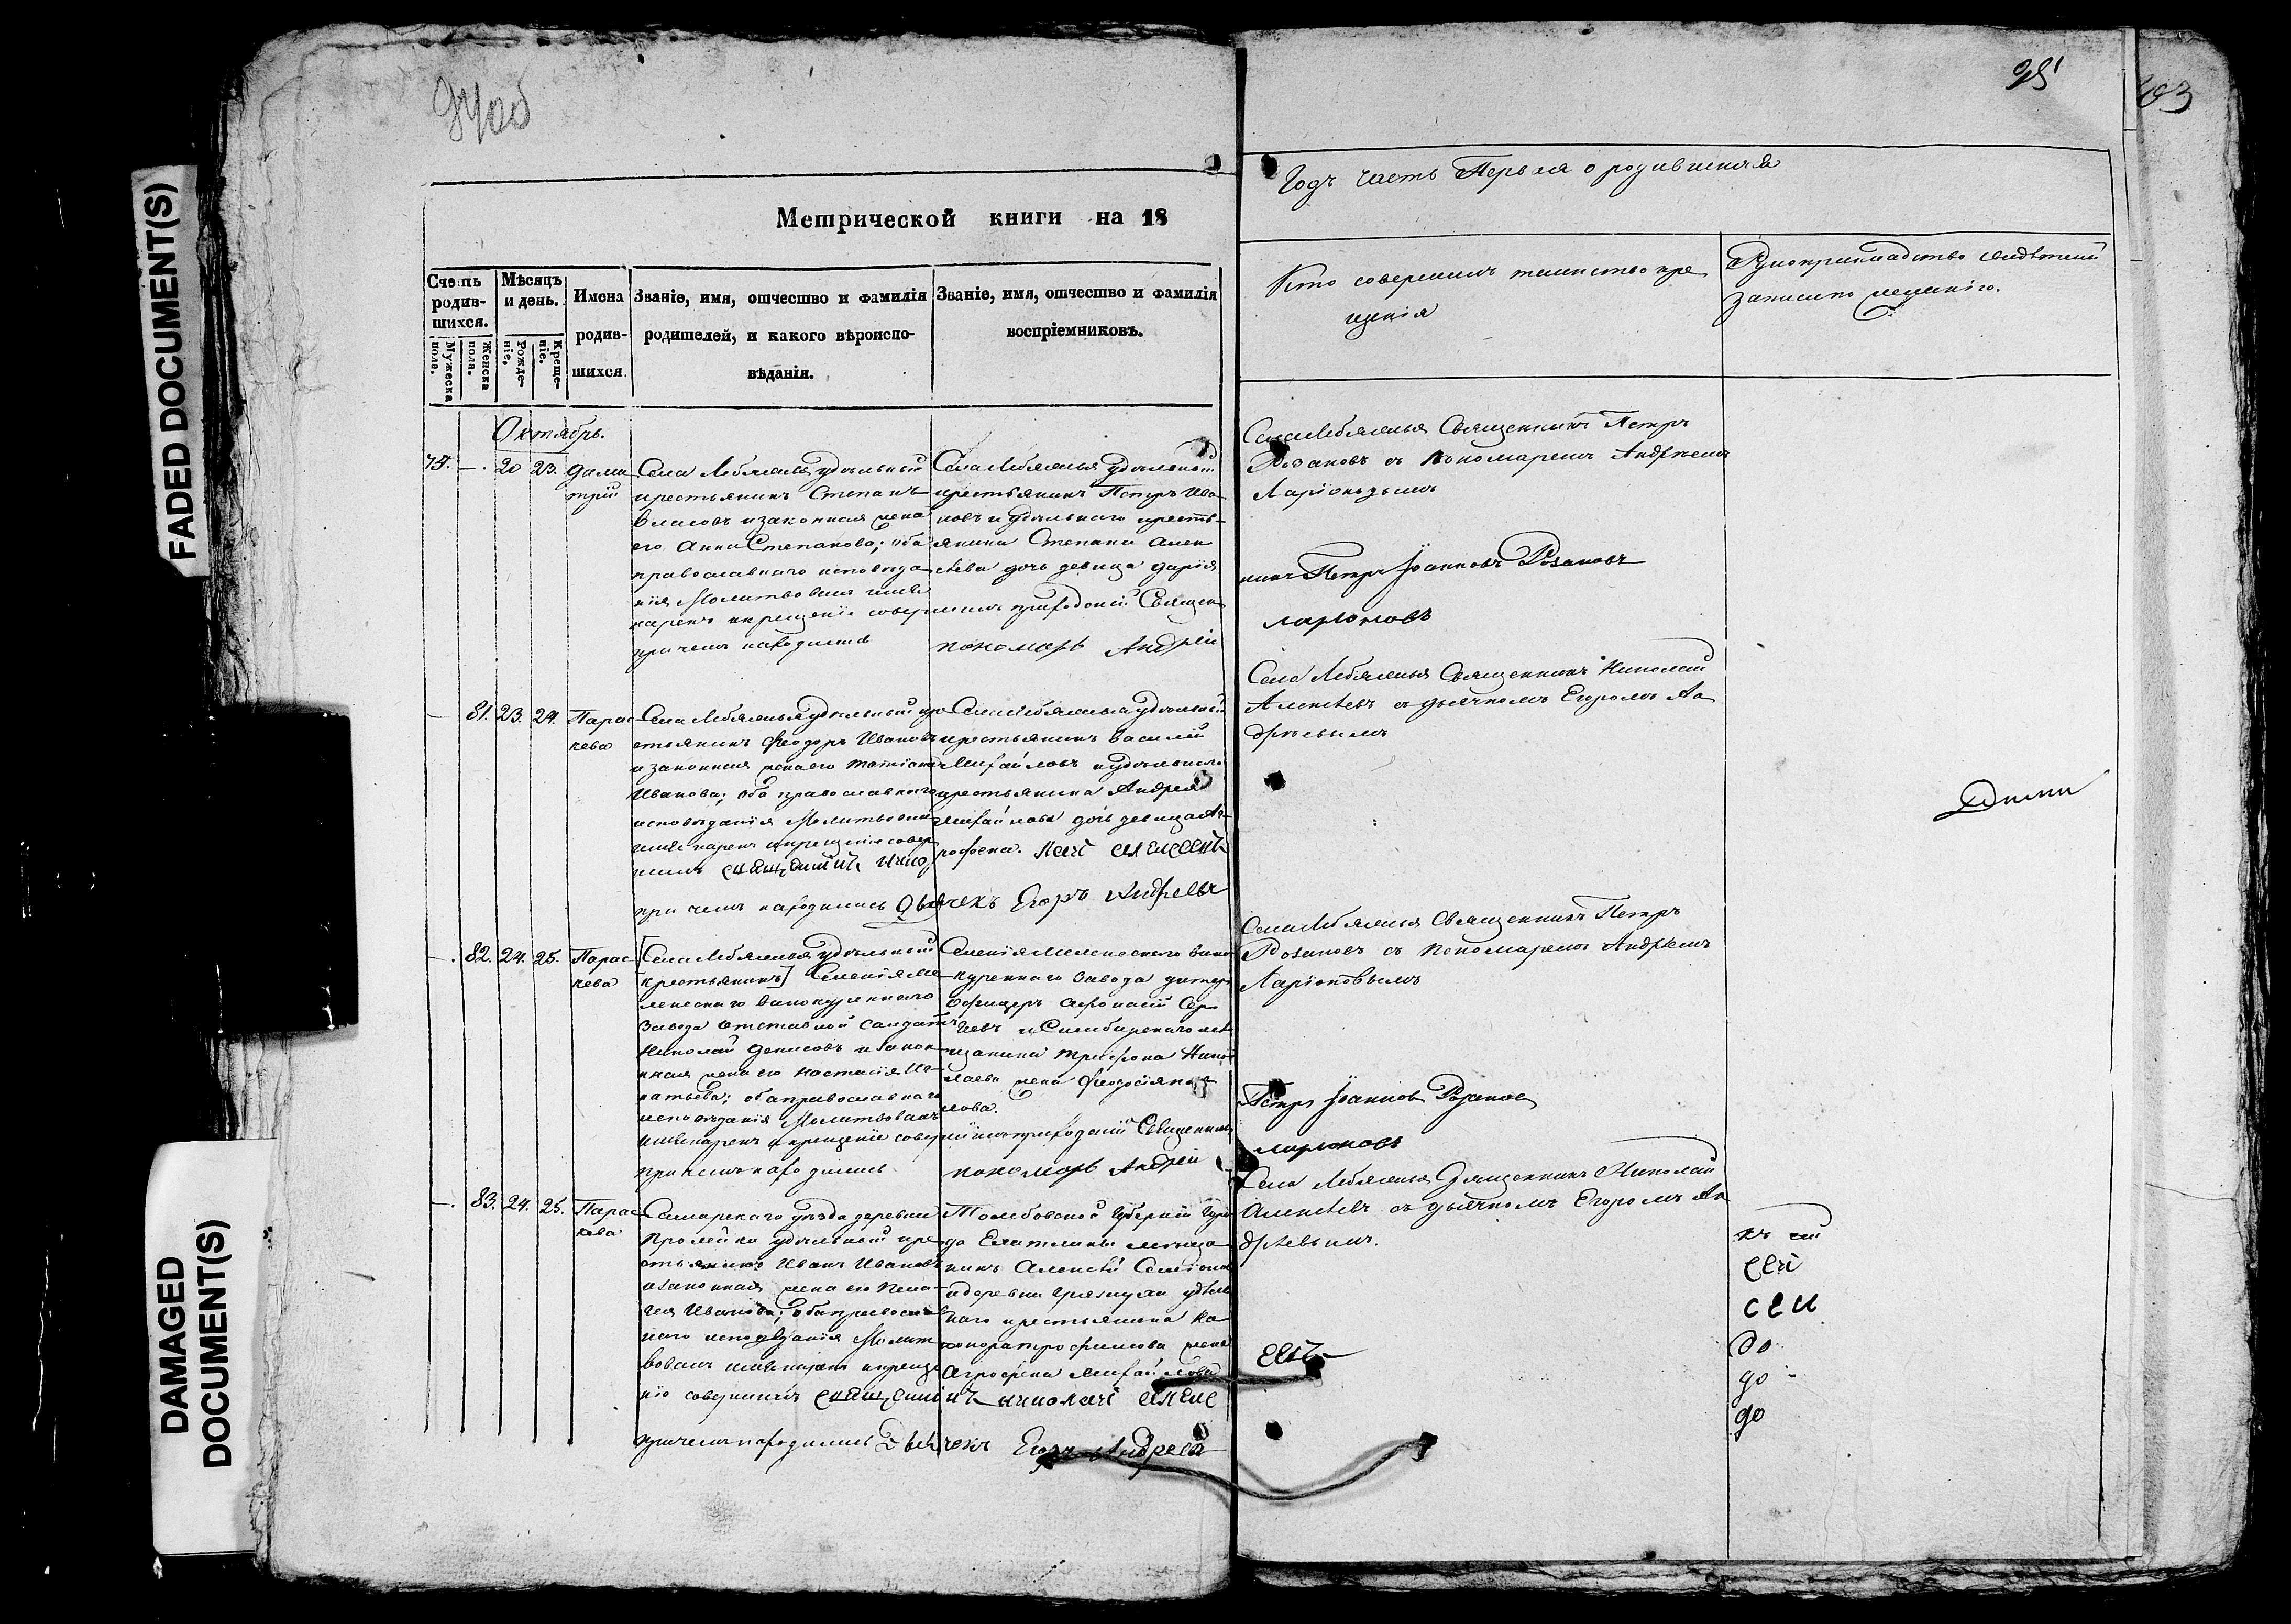 FADED DOCUMENT(S)
DAMAGED DOCUMENT(S)
94об
95
103
Метрической книги на 18
Годъ часть Первая о родившихся
Счетъ родив-шихся.
Мужеска пола.
Женска пола.
Мѣсяцъ и день.
Рожде-ніе.
Креще-ніе.
Имена родив-шихся.
Званіе, имя, отчество и фамилія
родителей, и какого вѣроиспо-
вѣданія.
Званіе, имя, отчество и фамилія
воспріемниковъ.
Кто совершилъ таинство кре
щенія
Рукоприкладство свидѣтелей
записи по желанію.
Октябрь.
75. — 20 23. Дими
трій
Села Лебяжья удѣльный
крестьянинъ Степанъ
Власовъ и законная жена
его Анна Степанова; оба
православнаго исповѣда
нія Молитвовалъ имя
нарекъ и крещеніе совершилъ приходскій Священ
при чемъ находился пономарь Андрей
Села Лебяжья удѣльной
крестьянинъ Петръ Ива
новъ и удѣльнаго кресть-
янина Степана Алек
сѣева дочь девица Дарія
Села Лебяжья Священникъ Петръ
Розановъ съ пономаремъ Андреемъ
Ларіоновымъ
никъ Петръ Іоанновъ Розановъ
Ларіоновъ
— 81. 23. 24. Парас
кева
Села Лебяжья удѣльный кре
стьянинъ Феодоръ Ивановъ
и законная жена его Татіана
Иванова; оба православнаго
исповѣданія Молитвовалъ
имя нарекъ и крещеніе совер
шилъ священникъ Нико
при чемъ находились дьячекъ Егоръ Андреевъ
Села Лебяжья удѣльный
крестьянинъ Василій
Михайловъ и удѣльнаго
крестьянина Андрея
Михайлова дочь девица Аг
рофена. лай алексеевъ
Села Лебяжья Священникъ Николай
Алексѣевъ съ дьячкомъ Егоромъ Ан
дреевымъ
— 82. 24. 25. Парас
кева
[Села Лебяжья удѣльный
крестьянинъ] Селенія Ме
лекескаго винокуреннаго
Завода отставной солдатъ
Николай Денисовъ и закон
ная жена его Настасія Иг
натьева; оба православнаго
исповѣданія Молитвовалъ
имя нарекъ и крещеніе совершилъ приходскій Священникъ
при чемъ находились пономарь Андрей
Селенія Мелекескаго вино
куреннаго Завода унтеръ
Офицеръ Афонасій Сер
геевъ и Симбирскаго ме
щанина Трифона Нико
лаева жена Феодосія
Села Лебяжья Священникъ Петръ
Розановъ съ пономаремъ Андреемъ
Ларіоновымъ
Петръ Іоанновъ Розановъ
Ларіоновъ
— 83. 24. 25. Парас
кева
Самарскаго уѣзда деревни
удѣльный кре
стьянинъ Иванъ Ивановъ
и законная жена его Пела
гея Иванова; оба православ
наго исповѣданія Молит
вовалъ имя нарекъ и креще
ніе совершилъ священникъ николай алекс
при чемъ находились дьячекъ Егоръ Андреевъ
Тамбовской Губерніи Горо
да Елатьмы мѣща
нинъ Алексѣй Семіонов
и деревни Грязнухи удѣль
наго крестьянина
Трофимова жена
Агрофена Михайлова
Села Лебяжья Священникъ Николай
Алексѣевъ съ дьячкомъ Егоромъ Ан
дреевымъ.
еевъ
до
до
до